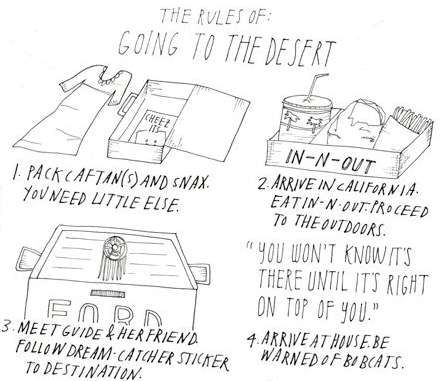 THE RULES OF:
GOING TO THE DESERT
CHEEZ
ITS
1. PACK CAFTAN(S) AND SNAX.
YOU NEED LITTLE ELSE.
IN-N-OUT
2. ARRIVE IN CALIFORNIA.
EAT IN-N-OUT. PROCEED
TO THE OUTDOORS.
FORD
3. MEET GUIDE & HER FRIEND.
FOLLOW DREAM-CATCHER STICKER
TO DESTINATION.
"YOU WON'T KNOW IT'S
THERE UNTIL IT'S RIGHT
ON TOP OF YOU."
4. ARRIVE AT HOUSE. BE
WARNED OF BOBCATS.